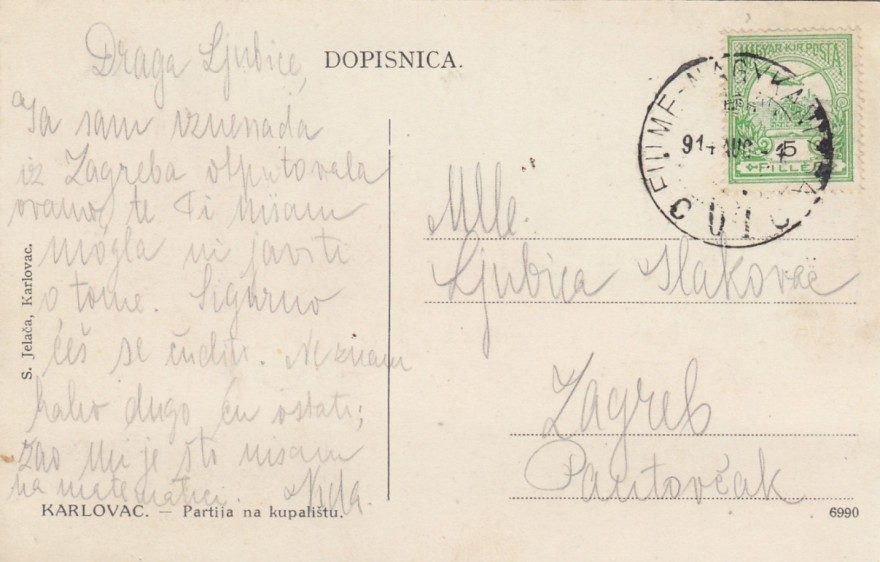 DOPISNICA.
Draga Ljubice,
Ja sam iznenada
iz Zagreba otputovala
ovamo, te Ti nisam
mogla ni javiti
o tome. Sigurno
ćeš se čuditi. Ne znam
kako dugo ću ostati;
žao mi je što nisam
na matematici.
KARLOVAC. — Partija na kupalištu.
S. Jelača, Karlovac.
MAGYAR KIR. POSTA
5
FILLÉR
FIUME-NAGYKANIZSA
914 AUG
Mlle.
Ljubica Slakovac
Zagreb
Pantovčak
6990